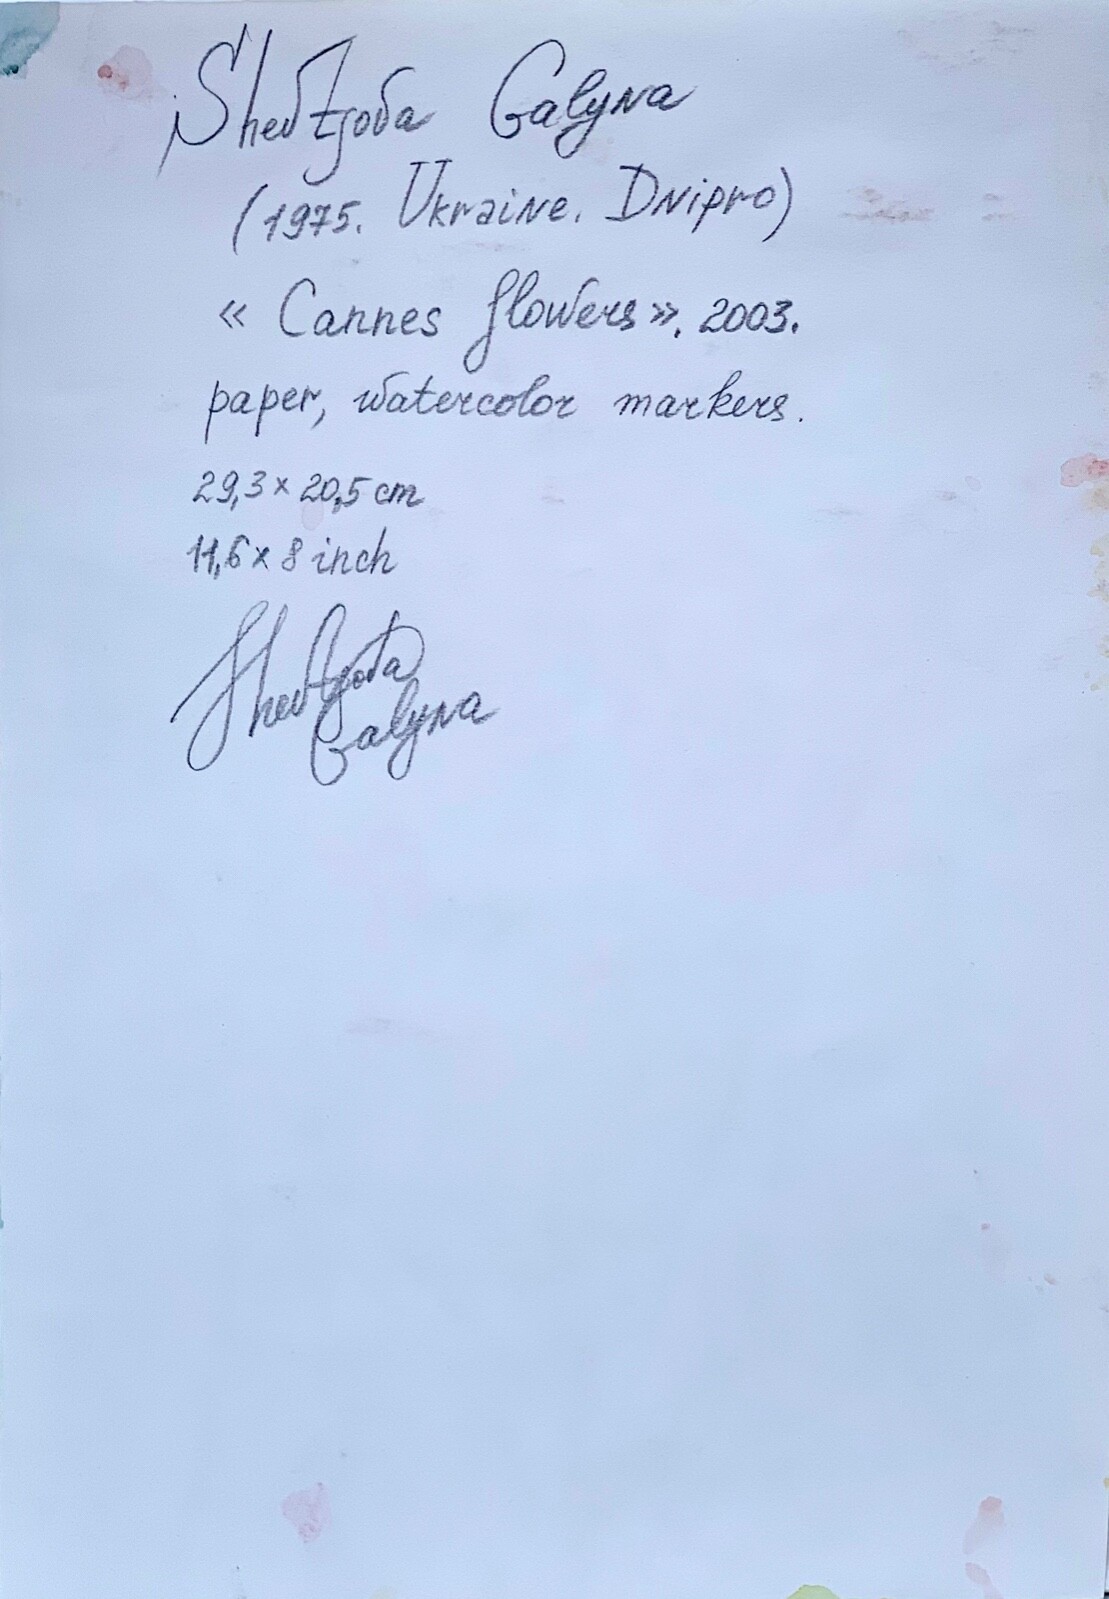 Shevtsova Galyna
(1975. Ukraine. Dnipro)
« Cannes flowers». 2003.
paper, watercolor markers.
29,3 x 20,5 cm
11,6 x 8 inch
Shevtsova
Galyna